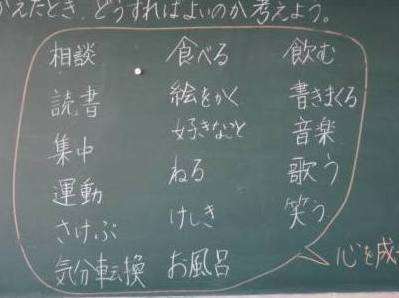 えたとき、どうすればよいのか考えよう。
相談 食べる 飲む
読書 絵をかく 書きまくる
集中 好きなこと 音楽
運動 ねる 歌う
さけぶ けしき 笑う
気分転換 お風呂
心を成